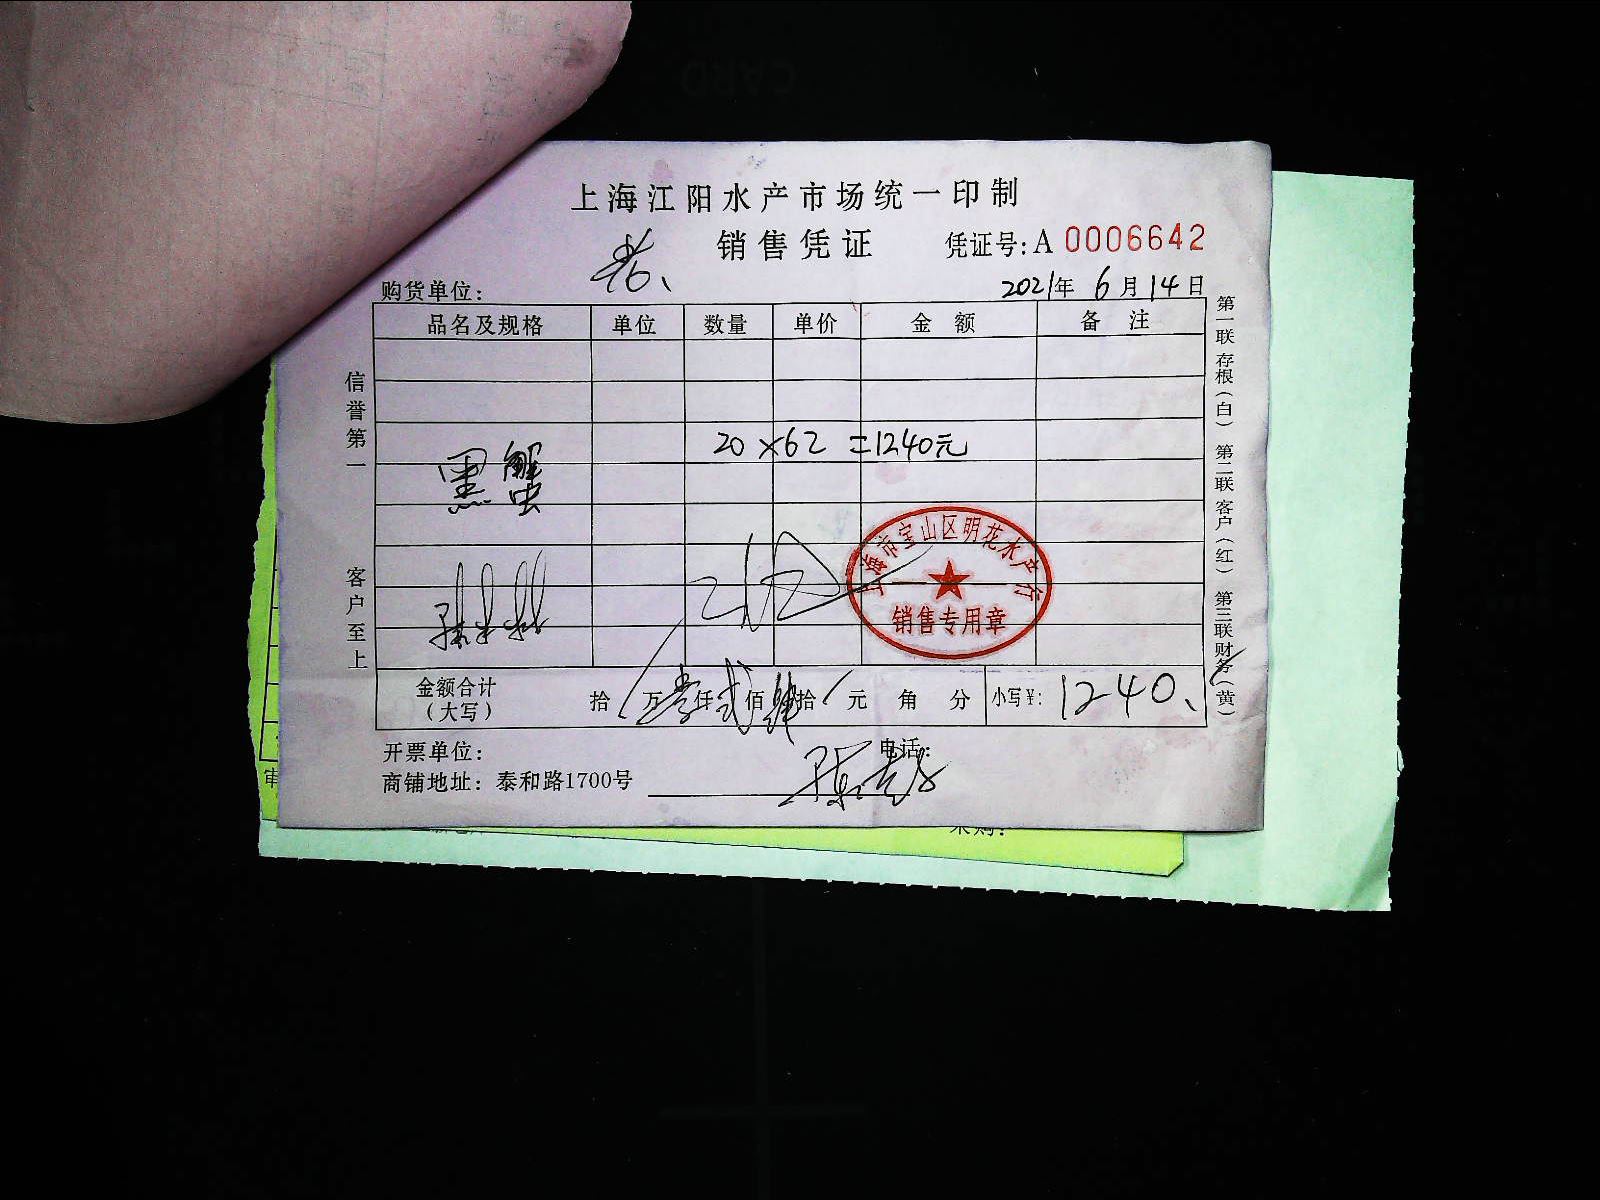 上海江阳水产市场统一印制
销售凭证 凭证号:A 0006642
购货单位: 2021年 6月14日
品名及规格 单位 数量 单价 金额 备注
黑蟹 20×62=1240元
上海市宝山区明花水产行
销售专用章
金额合计(大写) 拾万壹仟贰佰肆拾元 角 分 小写¥: 1240、
开票单位: 电话:
商铺地址: 泰和路1700号
信誉第一
客户至上
第一联存根(白) 第二联客户(红) 第三联财务(黄)